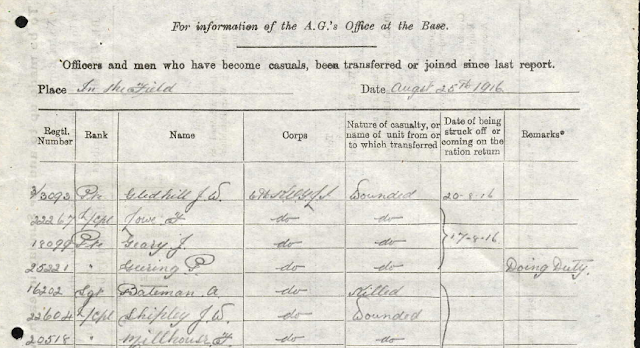 For information of the A.G.'s Office at the Base.
Officers and men who have become casuals, been transferred or joined since last report.
Place In the Field Date Augst 25th 1916
Regtl. Number Rank Name Corps Nature of casualty, or name of unit from or to which transferred Date of being struck off or coming on the ration return Remarks*
3/3093 Pte Gledhill J. W. Wounded 20-8-16
22267 L/Cpl Lowe F do do
18099 Pte Geary J. do do 17-8-16
25221 " Geering P do do Doing Duty.
16202 Sgt Bateman A do Killed
22604 L/Cpl Shipley J. W. do Wounded
20518 " Millhouse F. do do